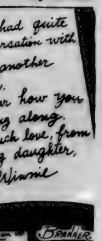 had quite
rsation with
another
r how you
g along.
ch love, from
g daughter,
Winnie
BRANNER